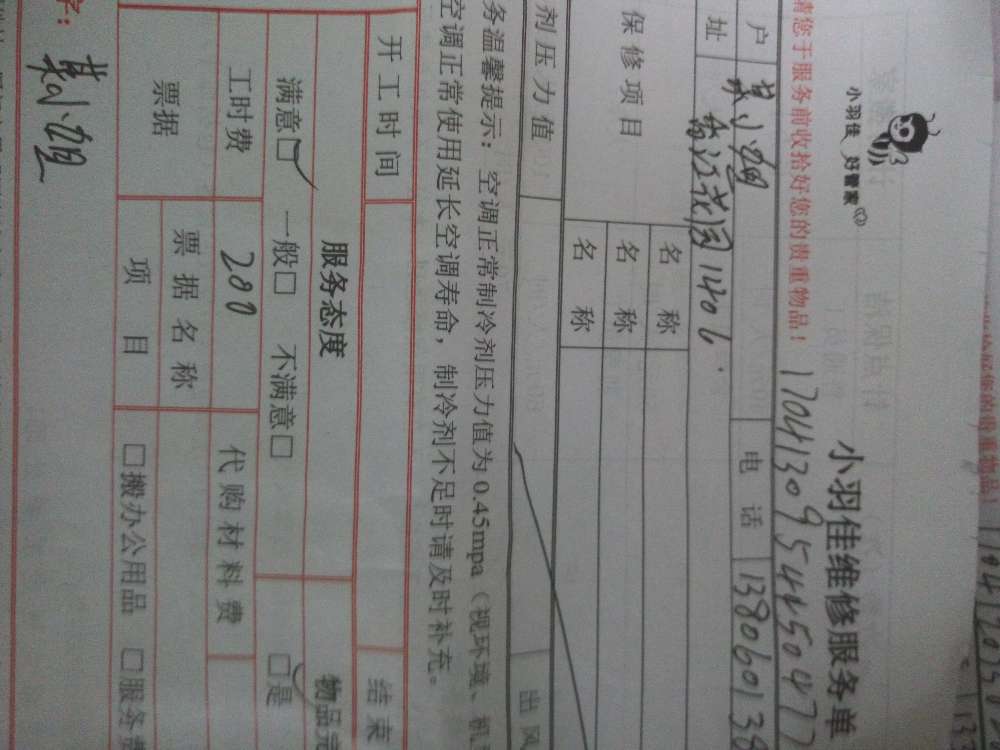 小羽佳 好管家
小羽佳维修服务单
请您于服务前收拾好您的贵重物品！ 17041309544450477
户 小姐 电话 138060138
址 花园1406
保修项目 名称
名称
名称
剂压力值 出风
务温馨提示：空调正常制冷剂压力值为0.45mpa（视环境、机
空调正常使用延长空调寿命，制冷剂不足时请及时补充。
开工时间 结束
服务态度 物品完
满意☑ 一般□ 不满意□ □是
工时费 200 代购材料费
票据 票据名称
项目 □搬办公用品 □服务费
字： 小姐